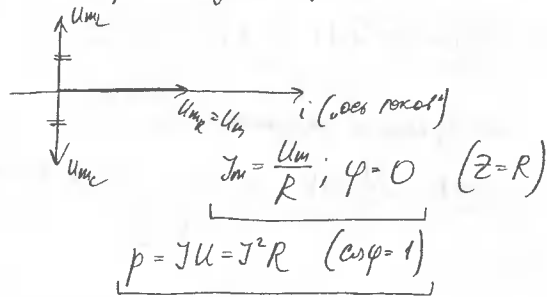 U_mL
U_mR = U_m
i („ось токов“)
U_mC
J_m = U_m/R; φ = 0 (Z = R)
p = JU = J²R (cosφ = 1)